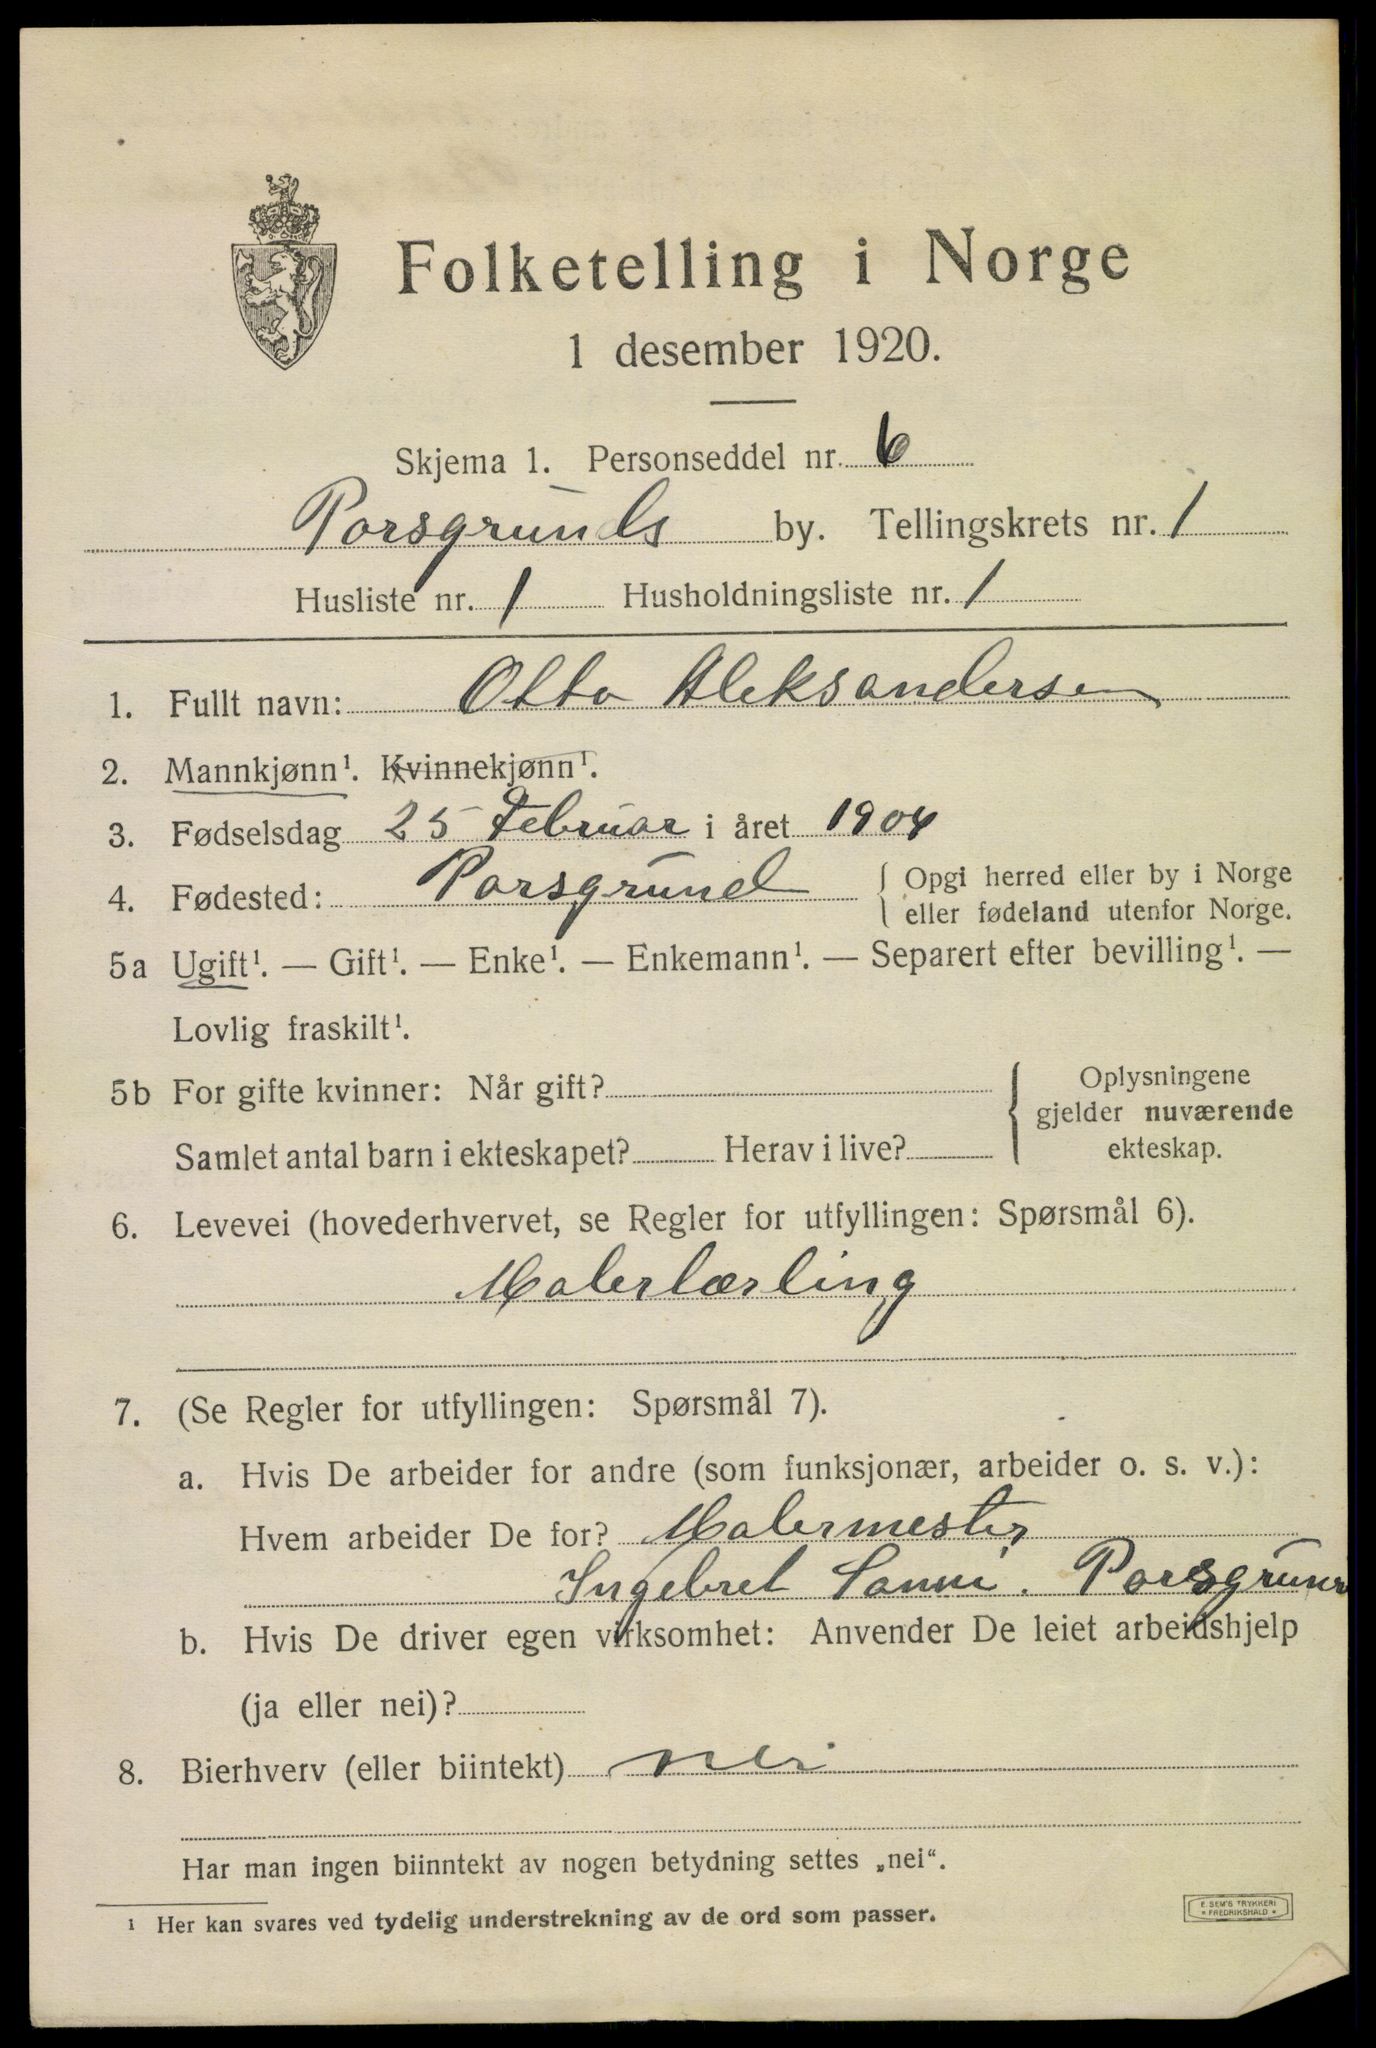 Folketelling i Norge
1 desember 1920.
Skjema 1. Personseddel nr. 6
Porsgrunds by. Tellingskrets nr. 1
Husliste nr. 1 Husholdningsliste nr. 1
1. Fullt navn: Otto Aleksandersen
2. Mannkjønn¹. Kvinnekjønn¹.
3. Fødselsdag 25 Februar i året 1904
4. Fødested: Porsgrund { Opgi herred eller by i Norge
eller fødeland utenfor Norge.
5a Ugift¹. — Gift¹. — Enke¹. — Enkemann¹. — Separert efter bevilling¹. —
Lovlig fraskilt¹.
5b For gifte kvinner: Når gift?
Samlet antal barn i ekteskapet? Herav i live?
{ Oplysningene
gjelder nuværende
ekteskap.
6. Levevei (hovederhvervet, se Regler for utfyllingen: Spørsmål 6).
Malerlærling
7. (Se Regler for utfyllingen: Spørsmål 7).
a. Hvis De arbeider for andre (som funksjonær, arbeider o. s. v.):
Hvem arbeider De for? Malermester
Ingebret Sanni. Porsgrund
b. Hvis De driver egen virksomhet: Anvender De leiet arbeidshjelp
(ja eller nei)?
8. Bierhverv (eller biintekt) nei
Har man ingen biinntekt av nogen betydning settes „nei“.
¹ Her kan svares ved tydelig understrekning av de ord som passer.
E. SEM'S TRYKKERI
* FREDRIKSHALD *